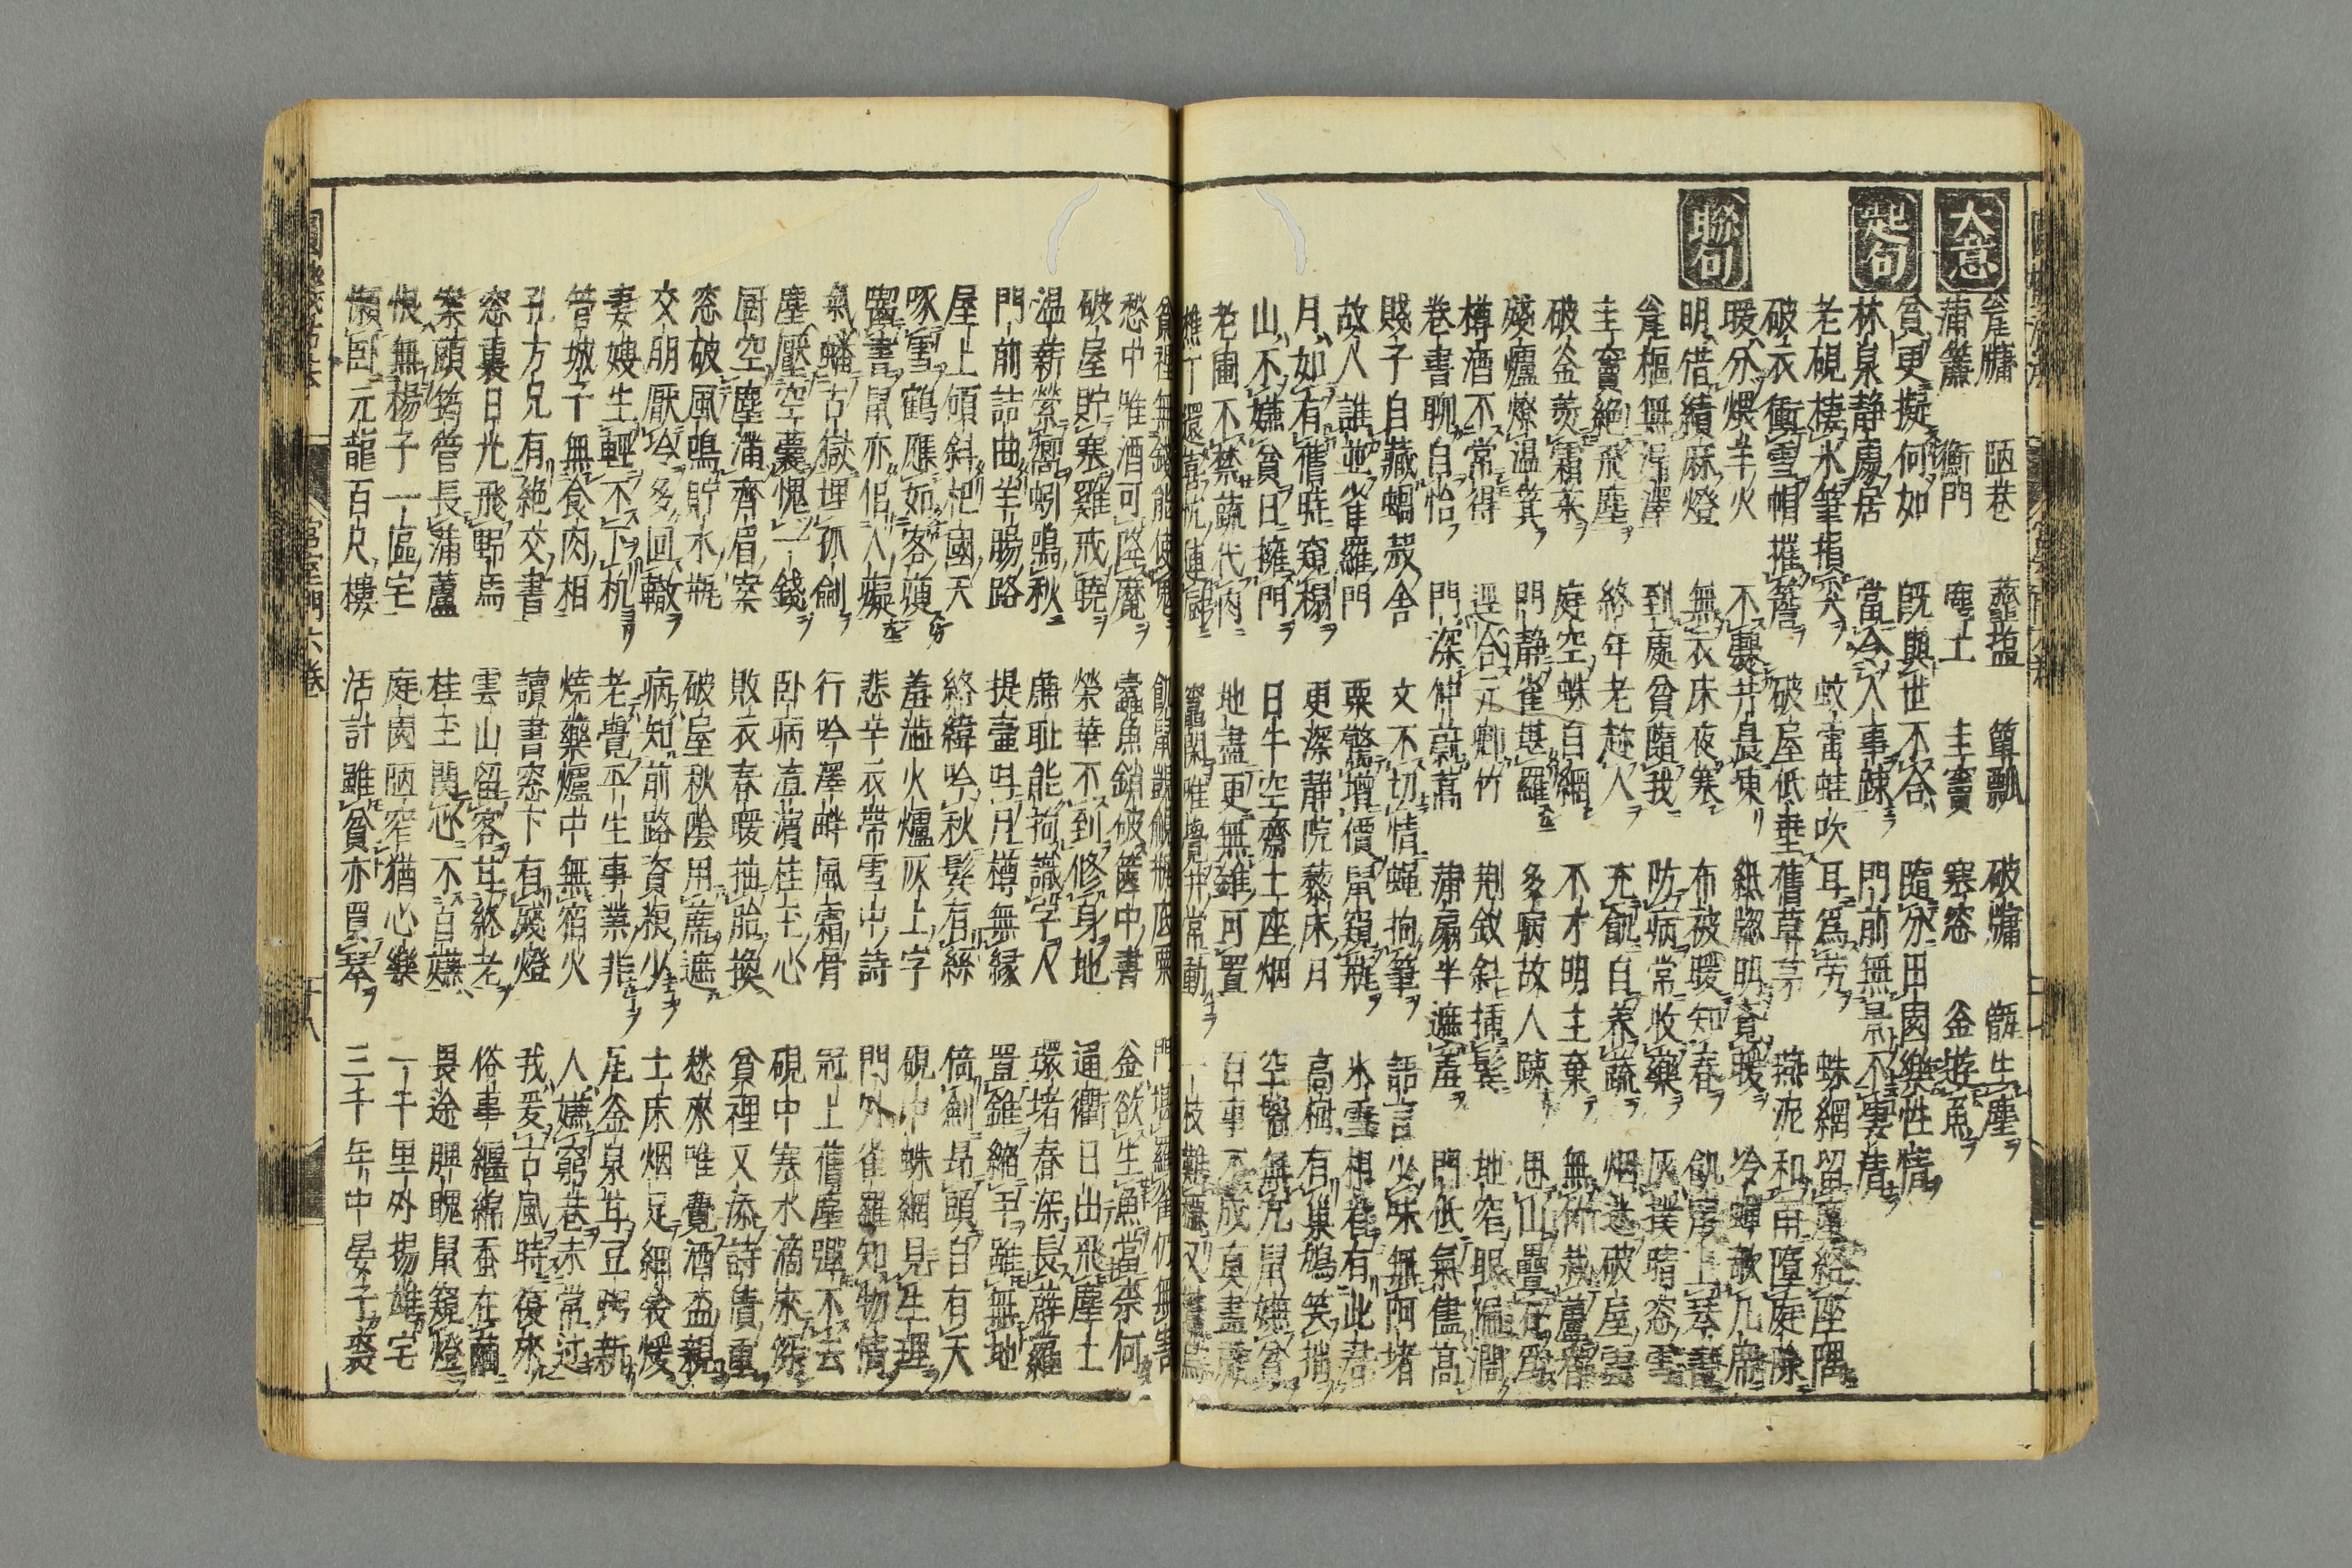 瓮牖　陋巷　虀塩　簞瓢　破牖　甑生塵
大意
蒲簾　衡門　塵土　圭竇　寒窓　釜遊魚
貧更擬何如　既與世不合　隨分田園樂性情
起句
林泉静處居　當今人事踈　門前無景不妻清
老硯棲氷筆指突　蚊雷蛙吹耳爲労　蛛網留塵経座隅
破衣衝雪帽摧簷　破屋低垂舊草茅　燕泥和雨墮庭除
暖分煨芋火　不爨井晨凍　紙窓明覚暖　冷蟬欹几席
聯句
明借績麻燈　無衣床夜寒　布被暖知春　飢上琴書
瓮樞無潤澤　到處貧隨我　防病常收藥　灰撲晴窓雪
圭竇絶飛塵　終年老趁人　充飢自養蔬　烟迷破屋雲
破釜羮霜菜　庭空蛛自網　不才明主棄　無術栽蘆
殘爐燎温箕　門静雀堪羅　多病故人踈　思山疊石爲
樽酒不常得　逕合元卿竹　荆釵斜插髪　地窄眼澗
巻書聊自怡　門深仲蔚蒿　蒲扇半遮羞　門低氣雋高
賤子自藏蝸殻舍　文不切情蠅拘筆　語言少味無阿堵
故人誰並雀羅門　粟驚增價鼠窺瓶　氷雪相看有此君
月如有舊時窺榻　更深静院藜床月　高樹有巢鳩笑拙
山不嫌貧日擁門　日午空齋土座烟　空無鼠嫌貧
老圃不禁蔬代肉　地盡更無錐可置　百事不成真盡
樵丁還喜連厨　竈閑唯覺井常動　一枝難穩又驚烏
無錢能使鬼　飢鼠覷觎瓶底粟　門堪羅雀仍無害
愁中唯酒可降魔　蠹魚鎖破篋中書　釜欲生魚當奈何
破屋貯寒雞戒曉　榮華不到修身地　逼衢日出飛塵土
温薪縈響蚓鳴秋　廉耻能拘識字人　環堵春深長薜蘿
門前詰曲羊腸路　提壷叫月樽無縁　置錐縮手雖無地
屋上傾斜杞國天　絡緯吟秋髪有絲　倚劔昂頭自有天
啄雪鶴應如客瘦　羞澁火爐灰上字　硯中蛛網見生理
齧書鼠亦侶人癡　悲辛衣帶雪中詩　門外雀羅知物情
氣蟠古嶽埋孤劔　行吟澤畔風霜骨　冠上舊塵彈不去
塵壓空嚢愧一錢　卧病漳濱桂玉心　硯中寒水滴來
厨空塵滿齊眉案　敗衣春暖抽胎換　貧裡又添詩債重
窓破風鳴貯水瓶　破屋秋陰用席遮　愁來唯覺酒盃親
交朋厭冷多回轍　病知前路資粮少　土床烟足紬衾煖
妻嫂生輕不下机　老覺平生事業非　瓦釜泉甘豆粥新
管城子無食肉相　燒藥爐中無宿火　人嫌窮巷赤常过
孔方兄有絶交書　讀書窓下有殘燈　我爰古風時復來
窓裏日光飛野馬　雲山留客甘終老　俗事纒綿蚕在繭
案頭筠管長蒲蘆　桂玉関心不自嫌　畏途腆鼠窺燈
恨無楊子一區宅　庭園陋窄猶心樂　一千里外揚雄宅
懶卧元龍百尺樓　活計雖貧亦買琴　三千年中晏子裘